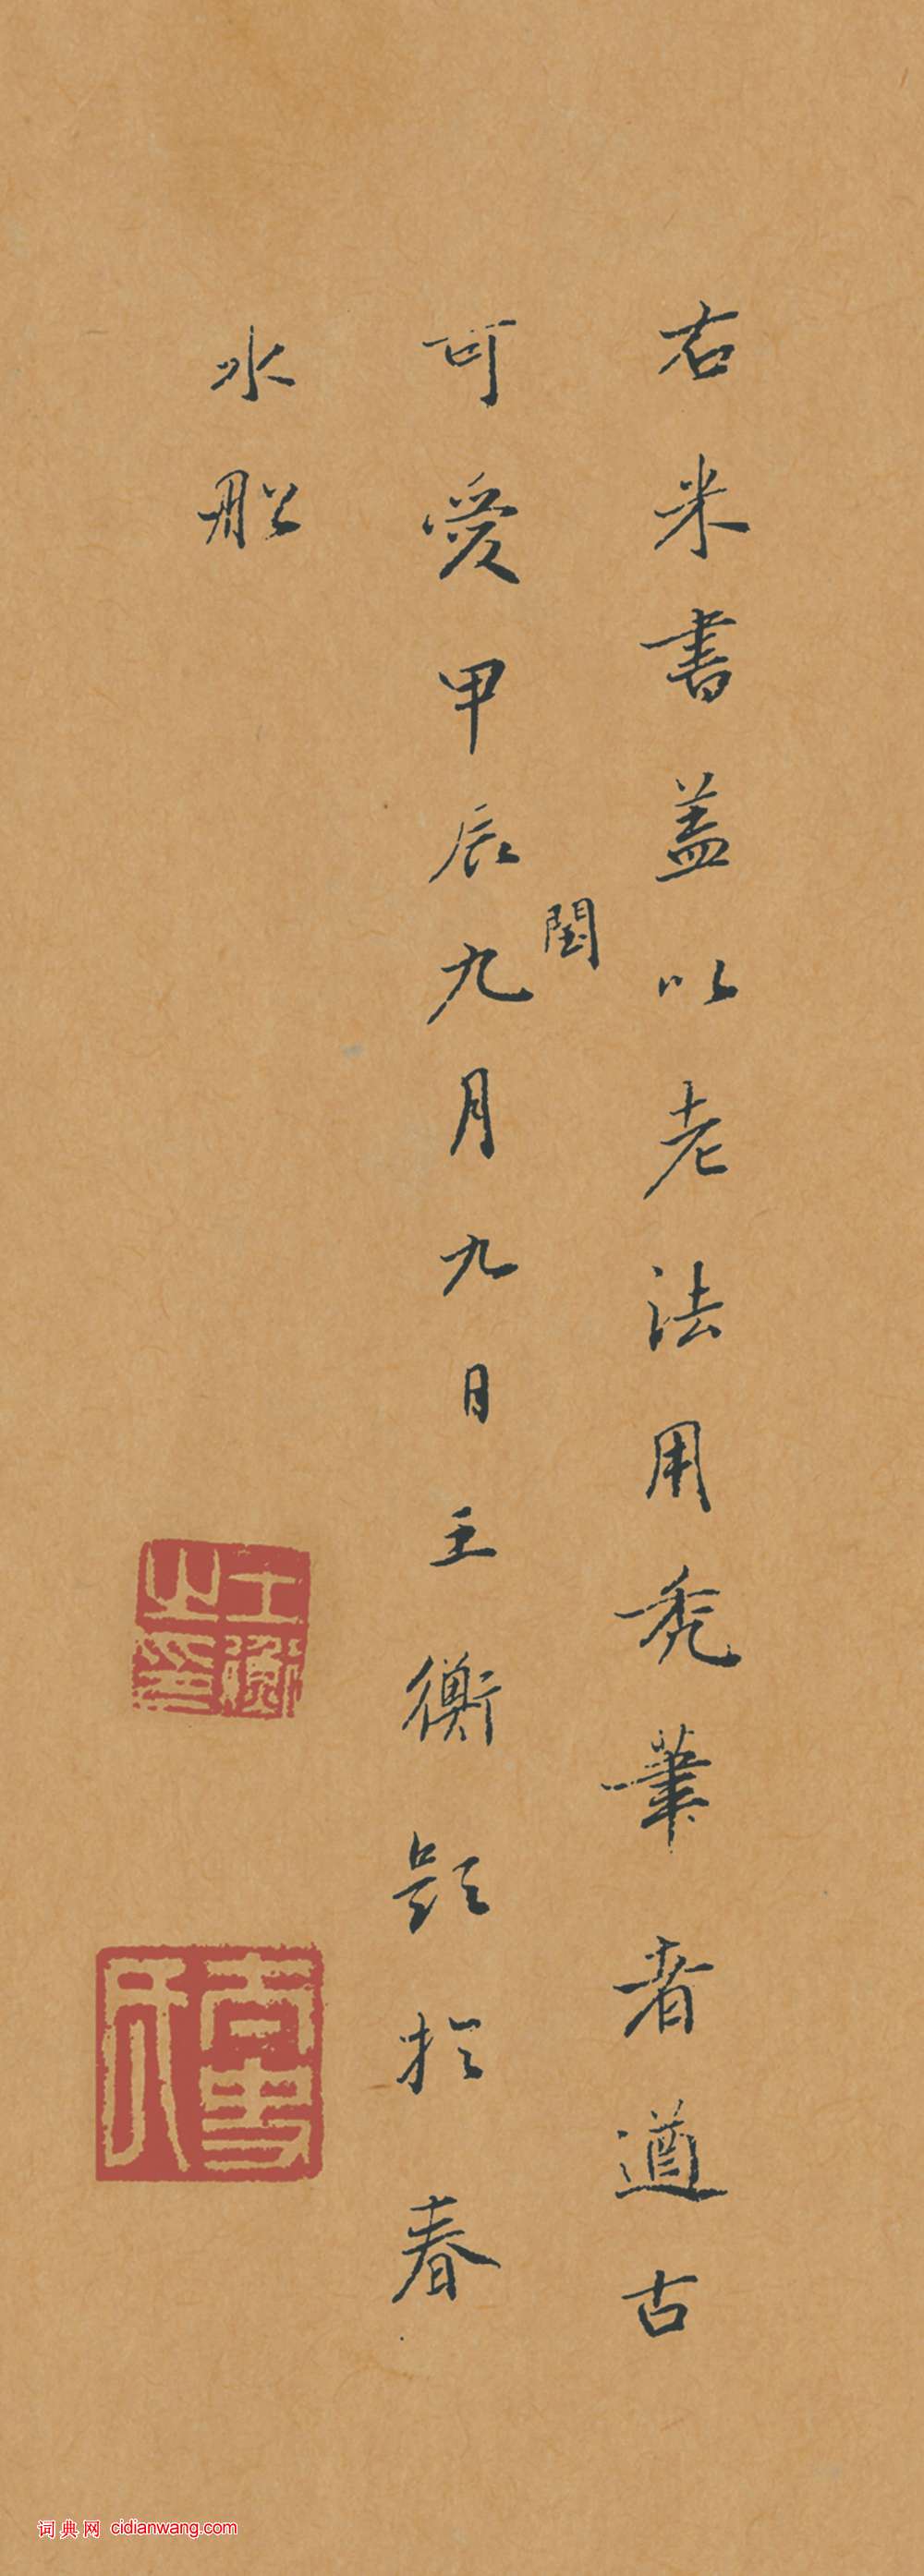 右米書蓋以老法用秃筆者遒古
可愛甲辰閏九月九日王衡題於春
水船
王衡之印
詞典网 cidianwang.com